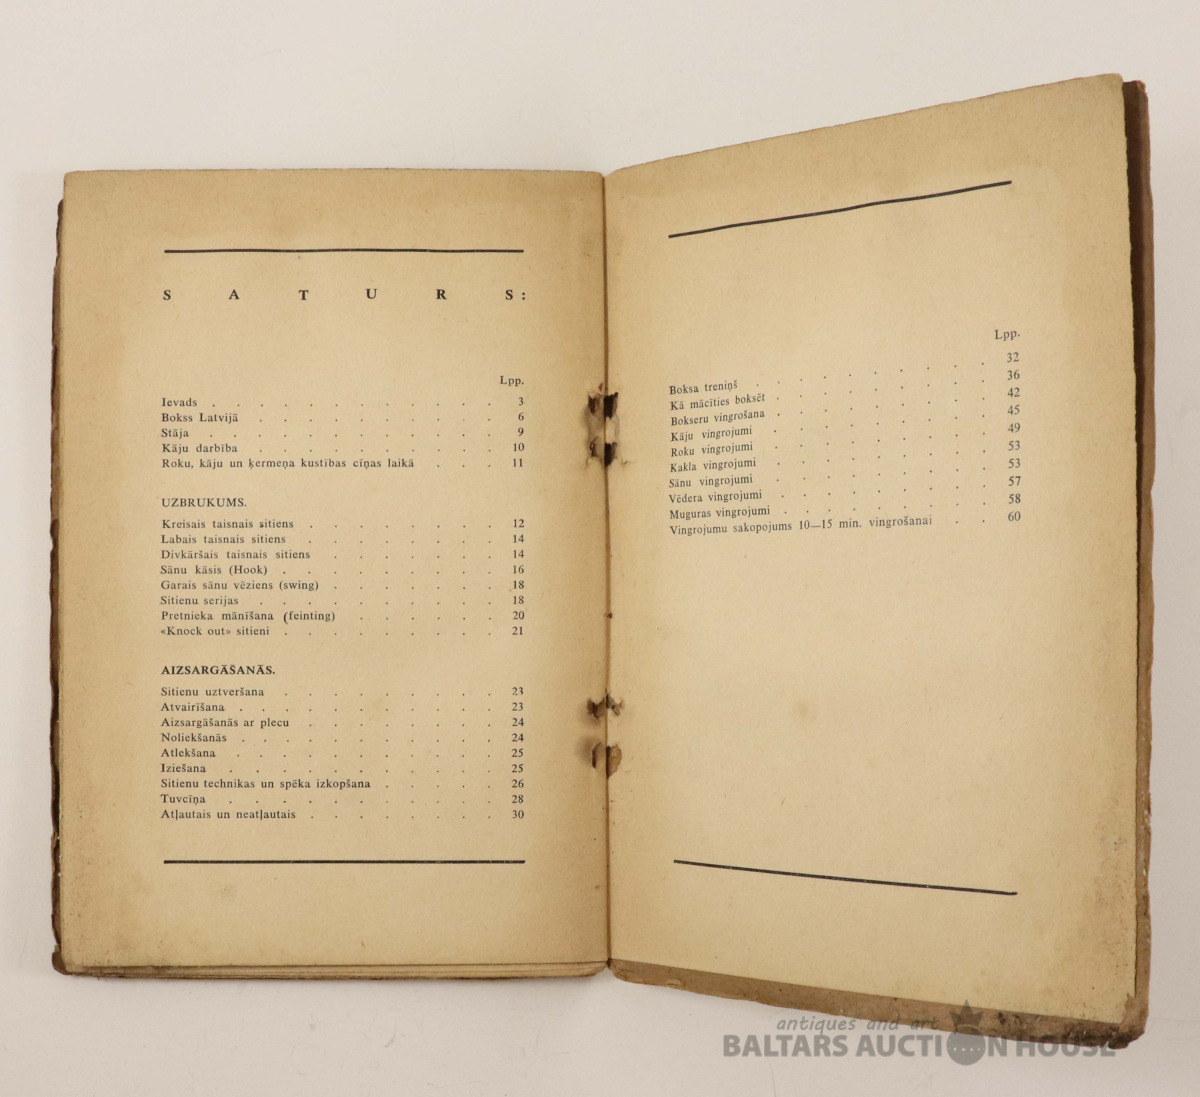 SATURS:
Lpp.
Ievads . . . . . . . . . . . . 3
Bokss Latvijā . . . . . . . . . . 6
Stāja . . . . . . . . . . . . 9
Kāju darbība . . . . . . . . . . 10
Roku, kāju un ķermeņa kustības cīņas laikā . . . 11
UZBRUKUMS.
Kreisais taisnais sitiens . . . . . . . . 12
Labais taisnais sitiens . . . . . . . . 14
Divkāršais taisnais sitiens . . . . . . . 14
Sānu kāsis (Hook) . . . . . . . . . 16
Garais sānu vēziens (swing) . . . . . . . 18
Sitienu serijas . . . . . . . . . . 18
Pretnieka mānīšana (feinting) . . . . . . 20
«Knock out» sitieni . . . . . . . . . 21
AIZSARGĀŠANĀS.
Sitienu uztveršana . . . . . . . . . 23
Atvairīšana . . . . . . . . . . . 23
Aizsargāšanās ar plecu . . . . . . . . 24
Noliekšanās . . . . . . . . . . . 24
Atlekšana . . . . . . . . . . . 25
Iziešana . . . . . . . . . . . 25
Sitienu technikas un spēka izkopšana . . . . . 26
Tuvcīņa . . . . . . . . . . . 28
Atļautais un neatļautais . . . . . . . . 30
Lpp.
Boksa treniņš . . . . . . . . 32
Kā mācīties boksēt . . . . . . . 36
Bokseru vingrošana . . . . . . . 42
Kāju vingrojumi . . . . . . . . 45
Roku vingrojumi . . . . . . . . 49
Kakla vingrojumi . . . . . . . . 53
Sānu vingrojumi . . . . . . . . 53
Vēdera vingrojumi . . . . . . . . 57
Muguras vingrojumi . . . . . . . 58
Vingrojumu sakopojums 10—15 min. vingrošanai . . 60
antiques and art
BALTARS AUCTION HOUSE